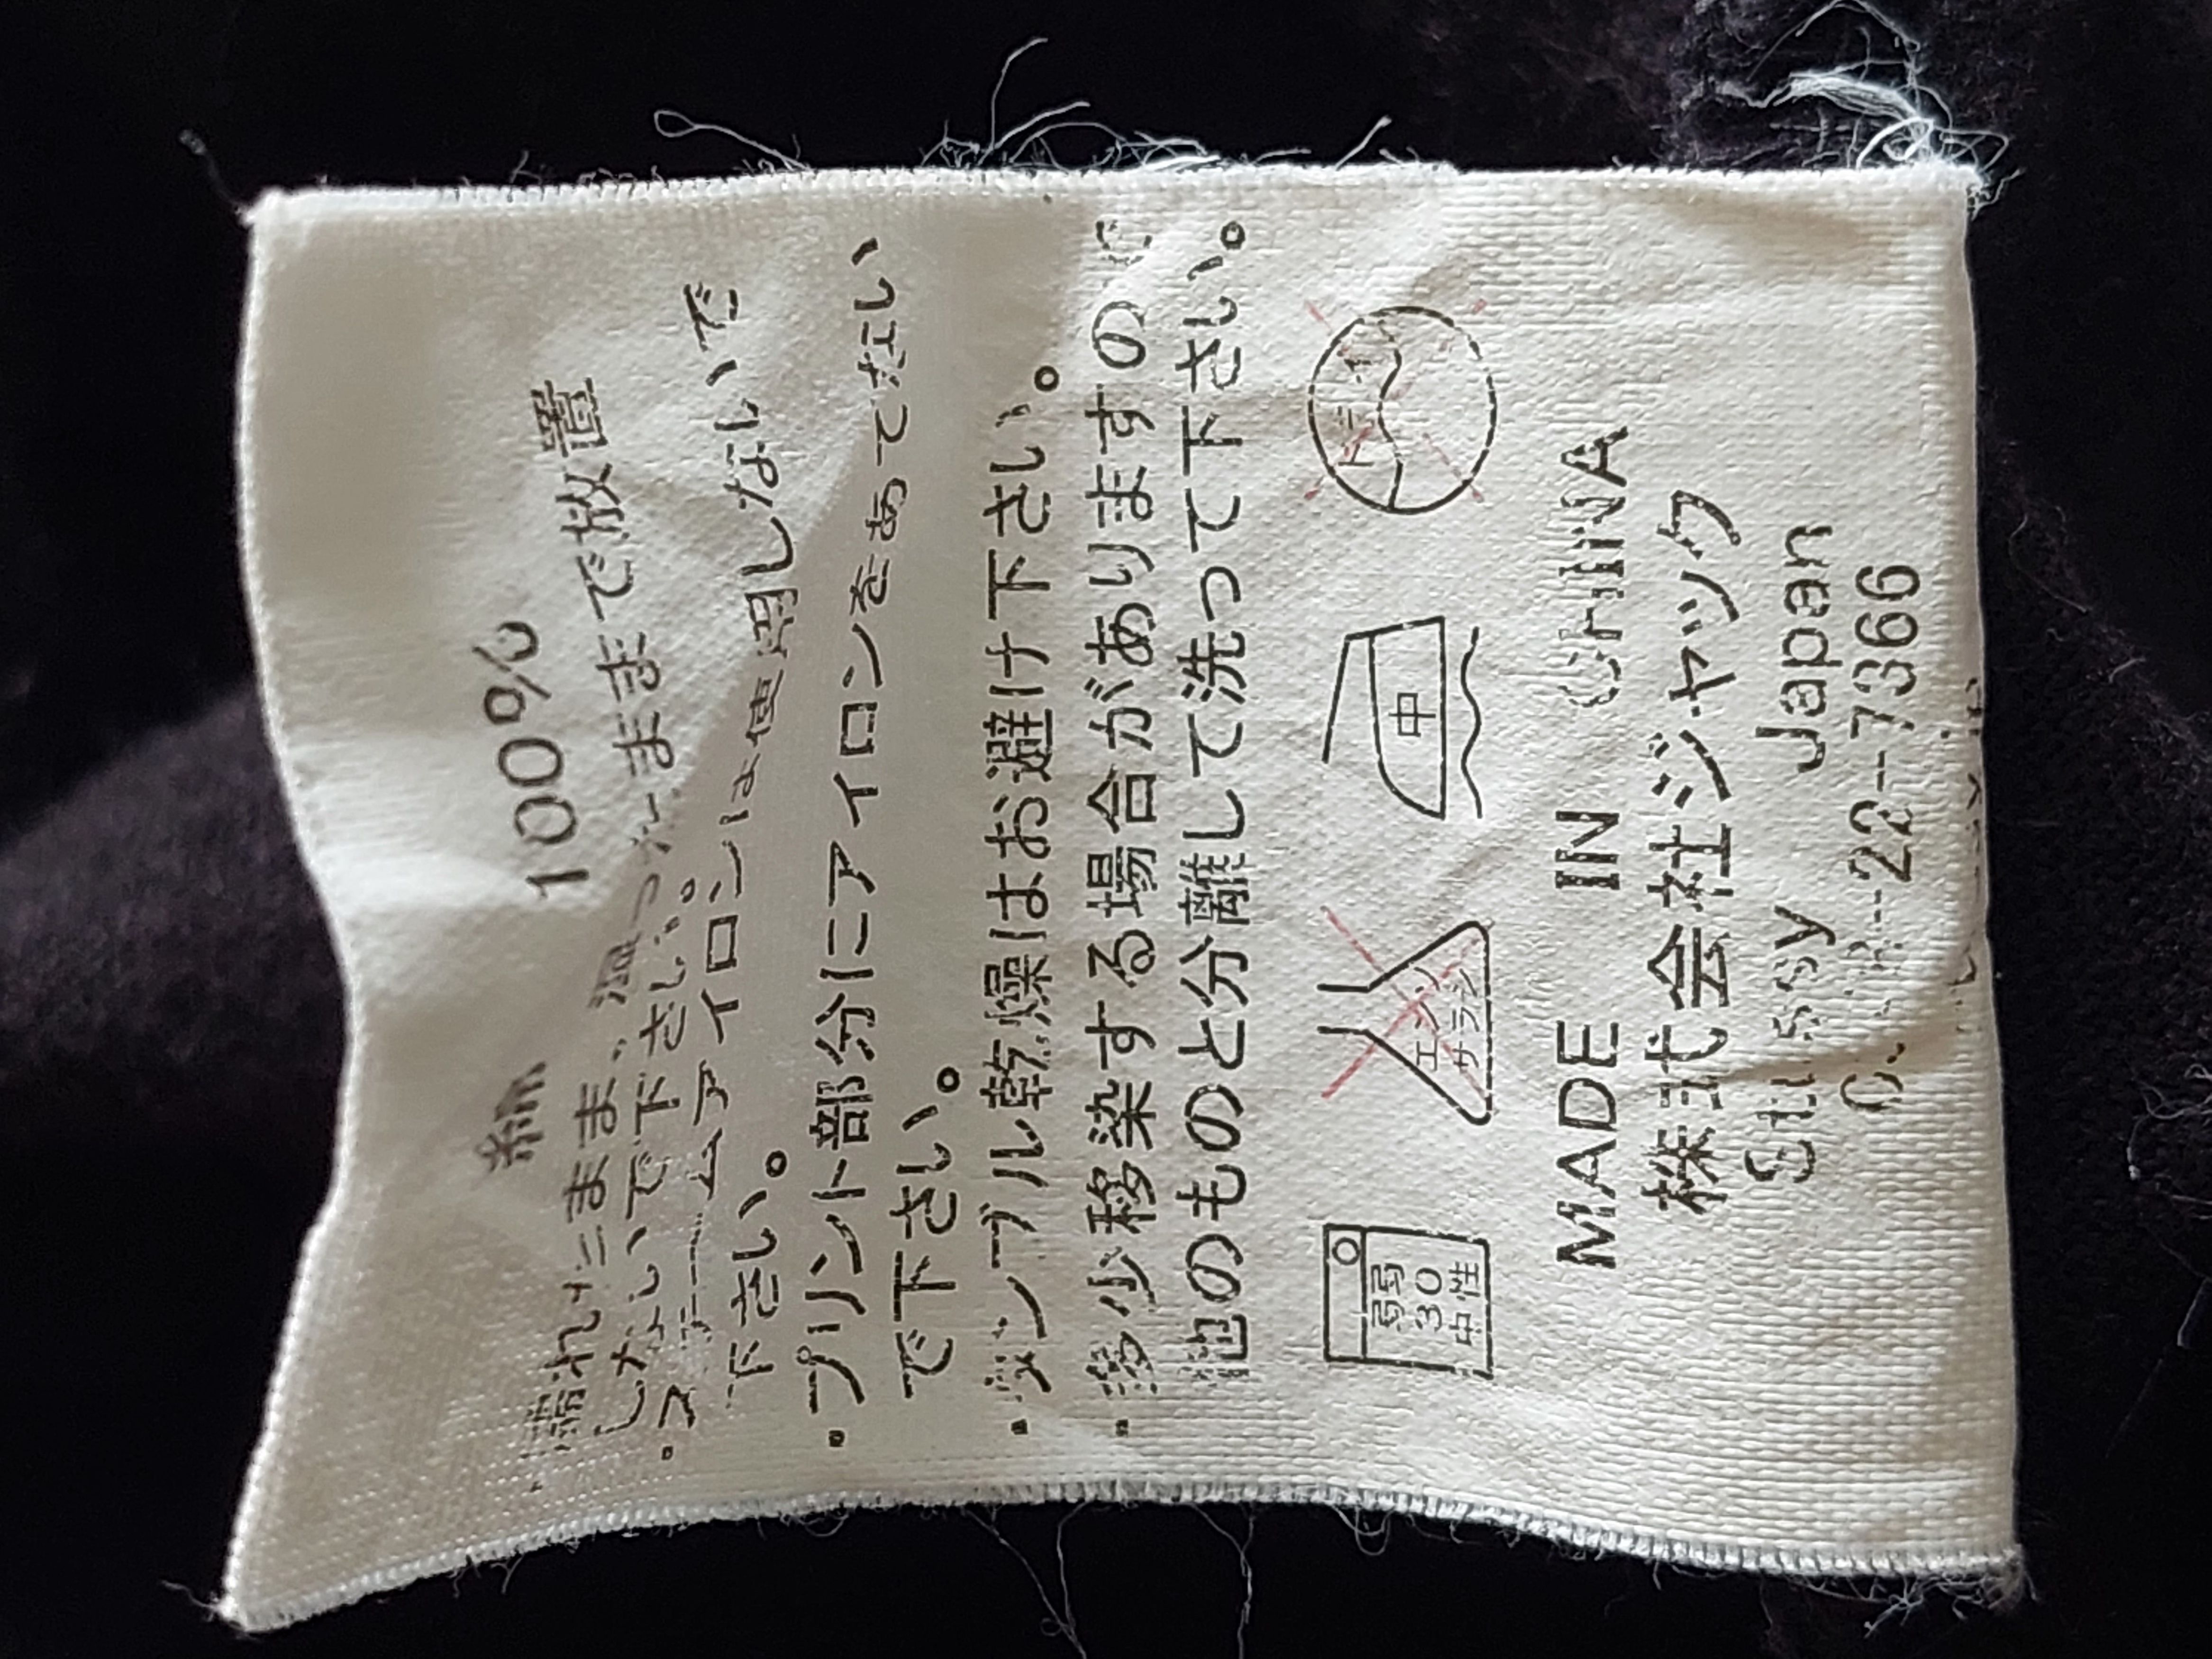 綿 100%
・濡れたまま、湿ったままで放置
しないで下さい。
・スチームアイロンは使用しないで
下さい。
・プリント部分にアイロンをあてない
で下さい。
・タンブル乾燥はお避け下さい。
・多少移染する場合がありますので
他のものと分離して洗って下さい。
弱
30
中性
エンソ
サラシ
中
ドライ
MADE IN CHINA
株式会社ジャック
Stussy Japan
22-7366